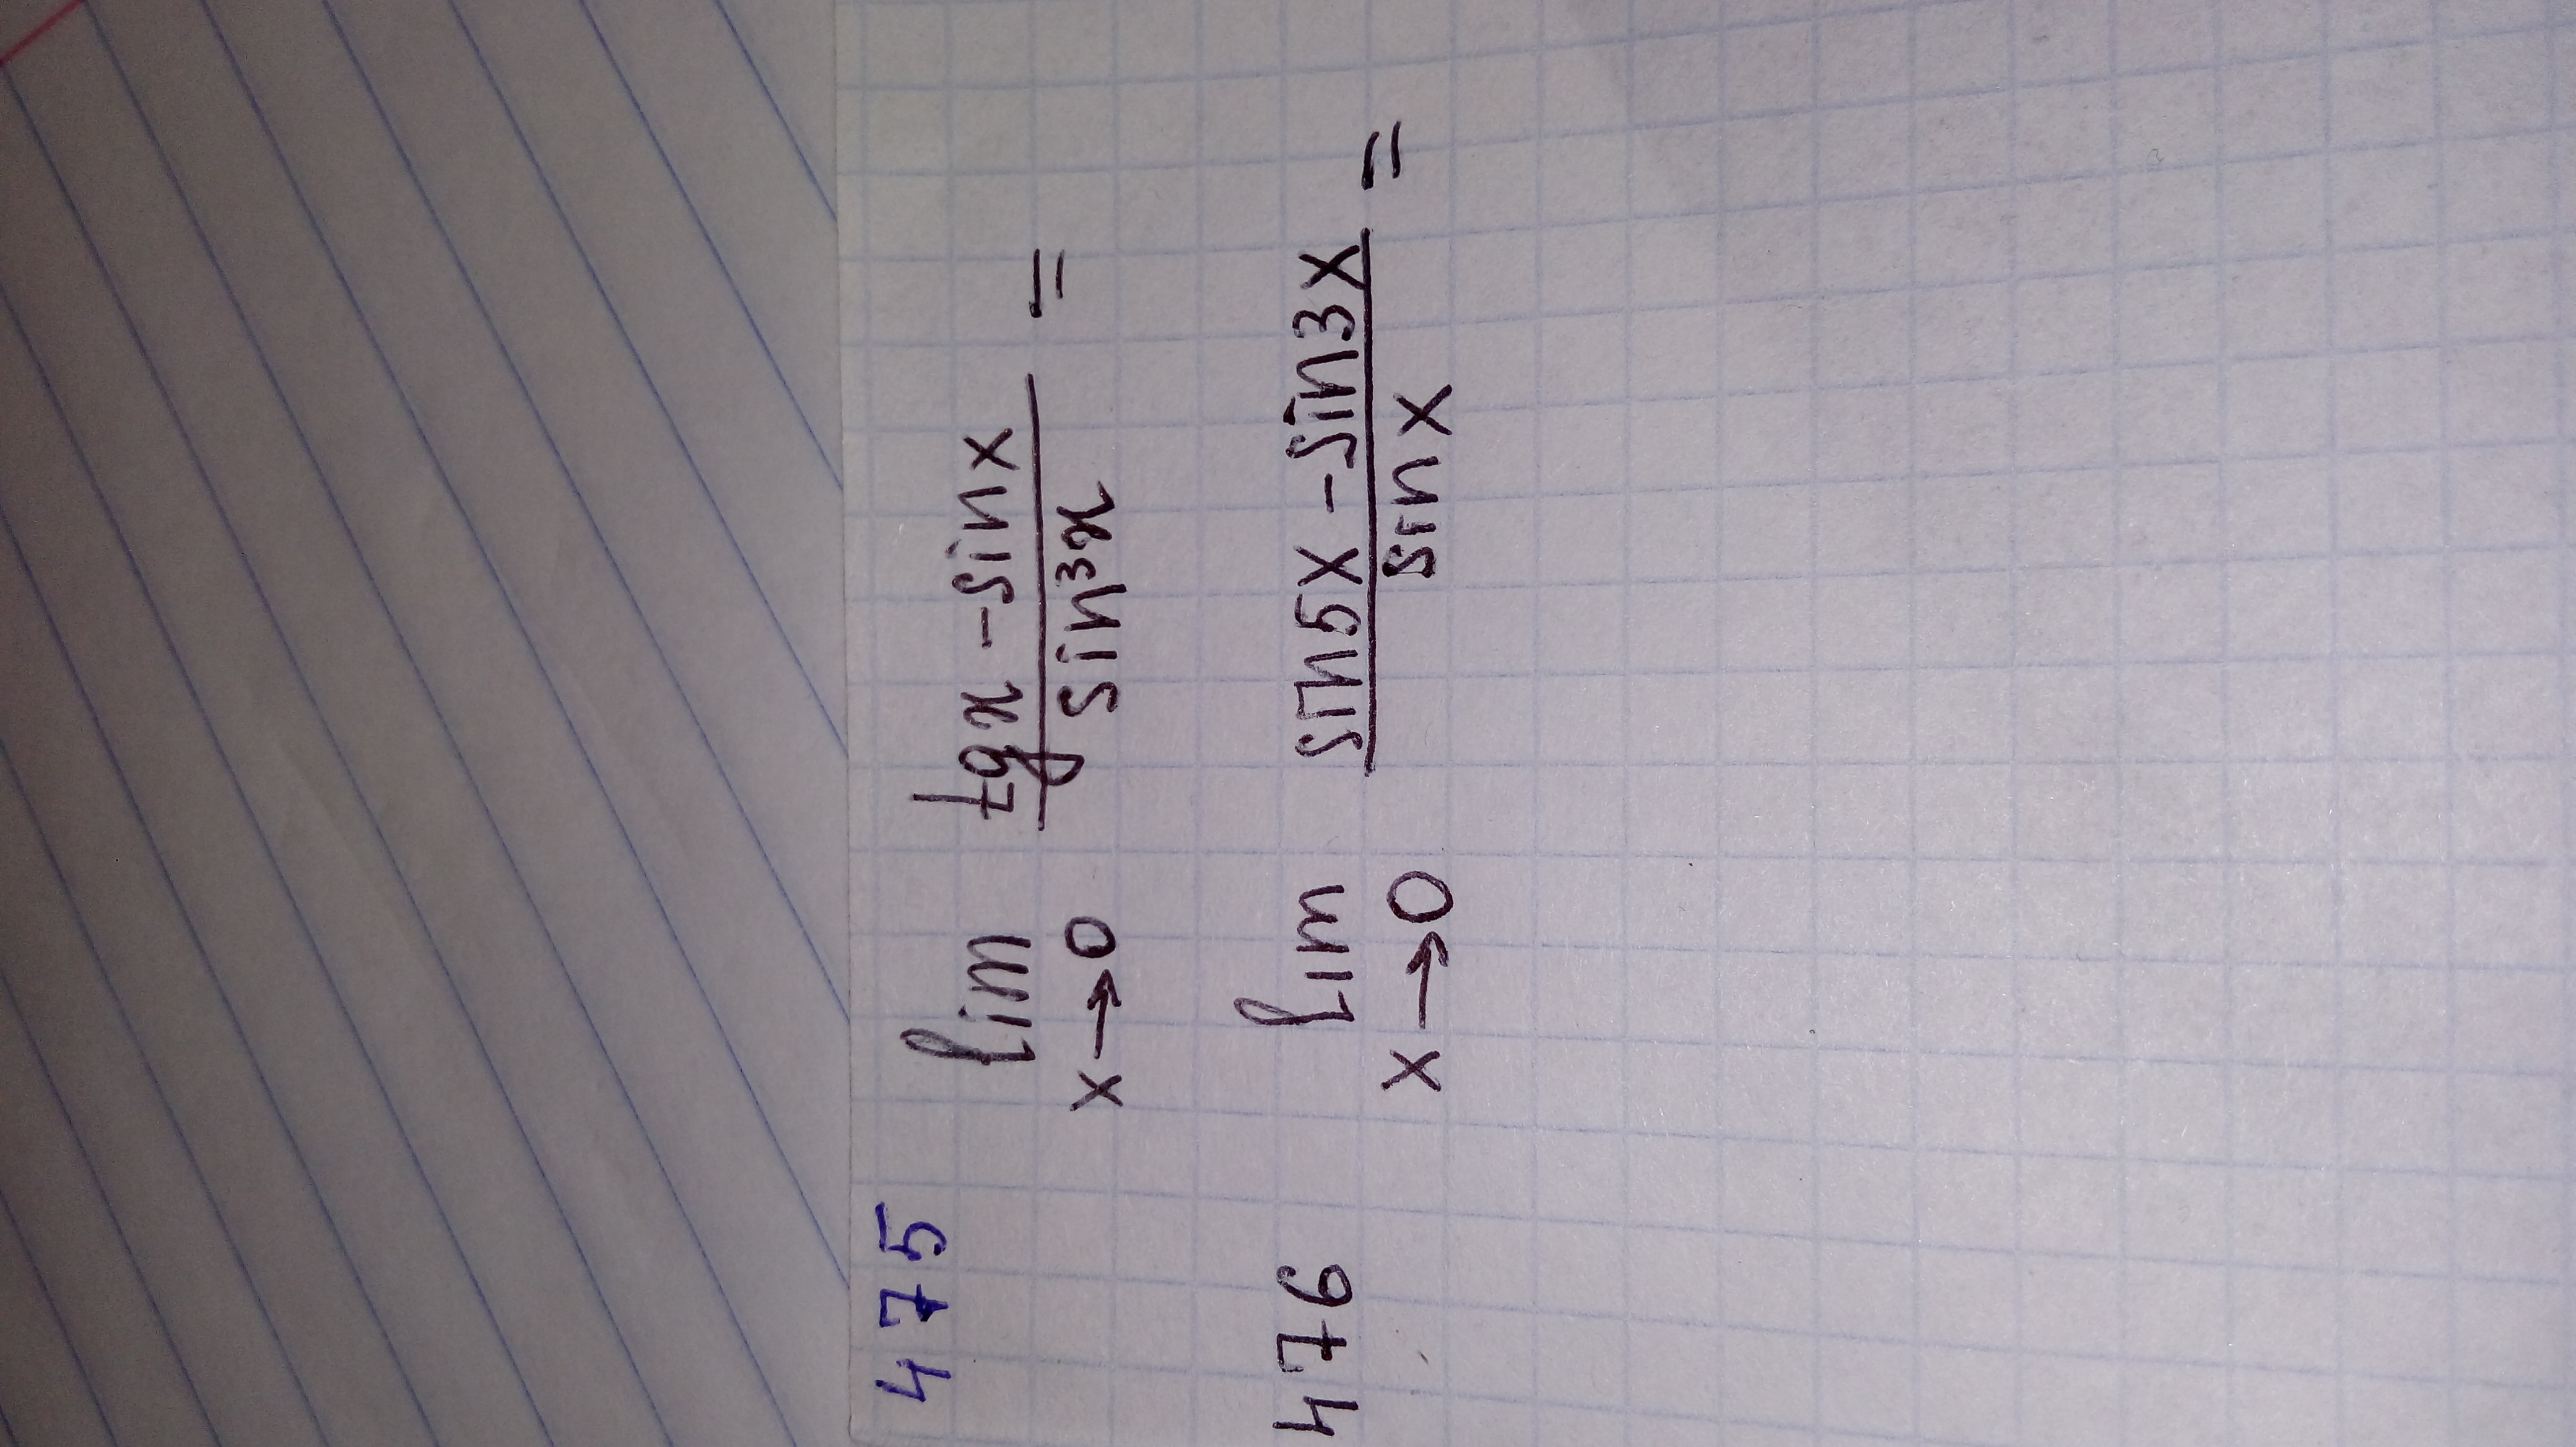 475 lim x→0 (tgx - sinx)/(sin³x) =
476 lim x→0 (sin5x - sin3x)/(sinx) =